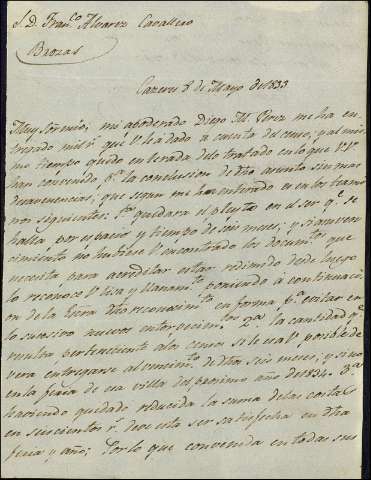 S. D. Franco. Alvarez Cavallero
Brozas
Cazeres 8 de Mayo de 1833
Muy Sor. mio; mi apoderado Diego M. Perez me ha en
tregado mil rs. que V. le a dado a cuenta del censo, y al mis
mo tiempo quedo enterado de lo tratado en lo que Vs.
han convenido, pa. la conclusion de dho asunto sin mas
desavenencias, que segun me ha enterado es en los termi
nos siguientes: 1o. quedara el pleyto en el ser qe. se
halla por espacio y tiempo de seis meses; y si a su ven
cimiento no hubiese V. encontrado los documtos. que
necesita para acreditar estar redimido desde luego
lo reconoce V. lisa y llanamte. poniendo a continuaci
on de la dho reconocimto. en forma pa. evitar en
lo sucesivo nuevos 2a. la cantidad qe.
resultra perteneciente a los censos si le es a V. posible de
vera entregarse al vencimto. de dhos seis meses, y si no
en la feria de esa villa del proximo año de 1834. 3a.
haviendo quedado reducida la suma de las costas
en seiscientos rs. deve esta ser satisfecha en dha
feria y año; Por lo que convenida en todas sus